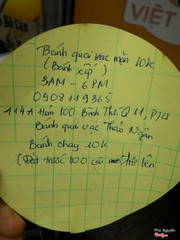 VIỆT
Bánh quai vạc mặn 10k
(Bánh xếp)
3AM - 6PM
0908119365
114A Hàn 100 Bình Thới Q11, P14
Bánh quai vạc Thảo Ngân
Bánh chay 10k
(Đặt trước 100 cái trở lên